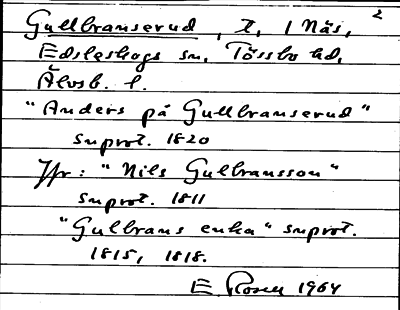 Gullbranserud, t, 1 Näs, 2
Edsleskogs sn, Tössbo hd,
Älvsb. l.
"Anders på Gullbranserud"
snprot. 1820
Jfr: "Nils Gulbransson"
snprot. 1811
"Gulbrans enka" snprot.
1815, 1818.
E Rosell 1964